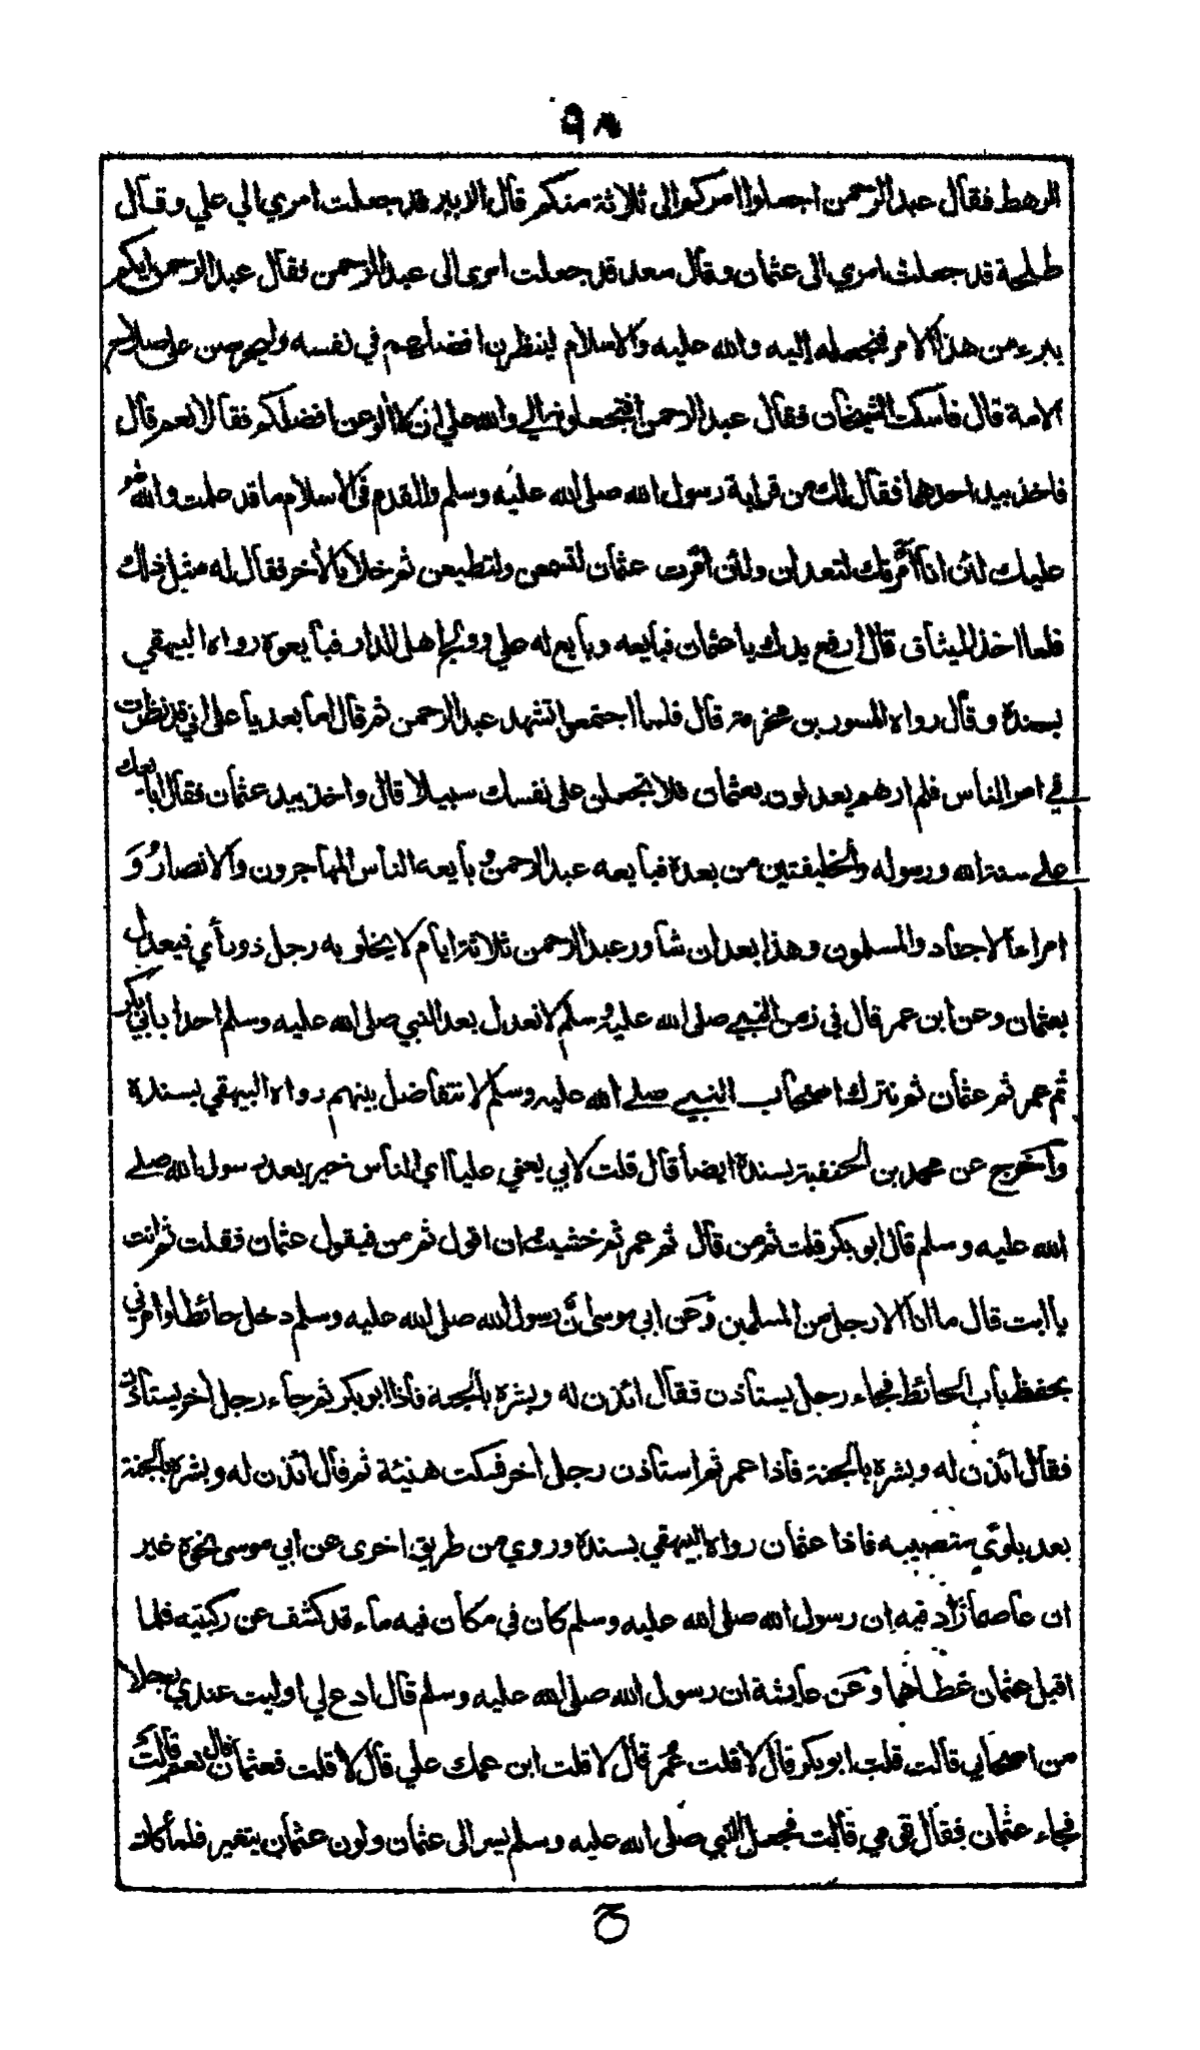 ٩٨
الرهط فقال عبد الرحمن اجعلوا امركم الى ثلاثة منكم قال الزبير قد جعلت امري الي علي وقال
طلحة قد جعلت امري الى عثمان وقال سعد قد جعلت امري الى عبد الرحمن فقال عبد الرحمن ايكم
يبرء من هذا الامر فنجعله إليه والله عليه والاسلام لينظرن افضلهم في نفسه وليحرصن على صلاح
الامة قال فاسكت الشيخان فقال عبد الرحمن افتجعلونه الي والله علي ان لا الو عن افضلكم فقالا نعم قال
فاخذ بيد احدهما فقال لك من قرابة رسول الله صلى الله عليه وسلم والقدم فى الاسلام ما قد علمت والله
عليك لئن انا أمّرتك لتعدلن ولئن أمّرت عثمان لتسمعن ولتطيعن ثم خلا بالأخر فقال له مثل ذلك
فلما اخذ الميثاق قال ارفع يدك يا عثمان فبايعه وبايع له علي وولج اهل الدار فبايعوه رواه البيهقي
بسنده وقال رواه المسور بن مخرمة قال فلما اجتمعوا تشهد عبد الرحمن ثم قال اما بعد يا على اني قد نظرت
في امر الناس فلم ارهم يعدلون بعثمان فلا تجعلن على نفسك سبيلا قال واخذ بيد عثمان فقال ابايعك
على سنة الله ورسوله والخليفتين من بعده فبايعه عبد الرحمن وبايعه الناس المهاجرون والانصار وَ
امراء الاجناد والمسلمون وهذا بعد ان شاور عبد الرحمن ثلاثة ايام لا يخلو به رجل ذو رأي فيعدل
بعثمان وعن ابن عمر قال في زمن النبي صلى الله عليه وسلم لا نعدل بعد النبي صلى الله عليه وسلم احدا بابي بكر
ثم عمر ثم عثمان ثم نترك اصحاب النبي صلى الله عليه وسلم لا نتفاضل بينهم رواه البيهقي بسنده
وأخرج عن محمد بن الحنفية بسنده ايضا قال قلت لابي يعني عليا اي الناس خير بعد رسول الله صلى
الله عليه وسلم قال ابو بكر قلت ثم من قال ثم عمر ثم خشيت ان اقول ثم من فيقول عثمان فقلت ثم انت
يا ابت قال ما انا الا رجل من المسلمين وَعن ابي موسى انّ رسول الله صلى الله عليه وسلم دخل حائطا وامرني
بحفظ باب الحائط فجاء رجل يستأذن فقال ائذن له وبشره بالجنة فاذا ابو بكر ثم جاء رجل أخر يستأذن
فقال ائذن له وبشره بالجنة فاذا عمر ثم استاذن رجل أخر فسكت هنيئة ثم قال ائذن له وبشره بالجنة
بعد بلوى ستصيبه فاذا عثمان رواه البيهقي بسنده وروي من طريق اخرى عن ابي موسى نحوه غير
ان عاصما زاد فيه ان رسول الله صلى الله عليه وسلم كان في مكان فيه ماء قد كشف عن ركبتيه فلما
اقبل عثمان غطاهما وَعَن عايشة ان رسول الله صلى الله عليه وسلم قال ادع لي او ليت عندي رجلا
من اصحابي قالت قلت ابو بكر قال لا قلت عُمر قال لا قلت ابن عمك علي قال لا قلت فعثمان قال نعم قالت
فجاء عثمان فقال قومي قالت فجعل النبي صلى الله عليه وسلم يسر الى عثمان ولون عثمان يتغير فلما كان